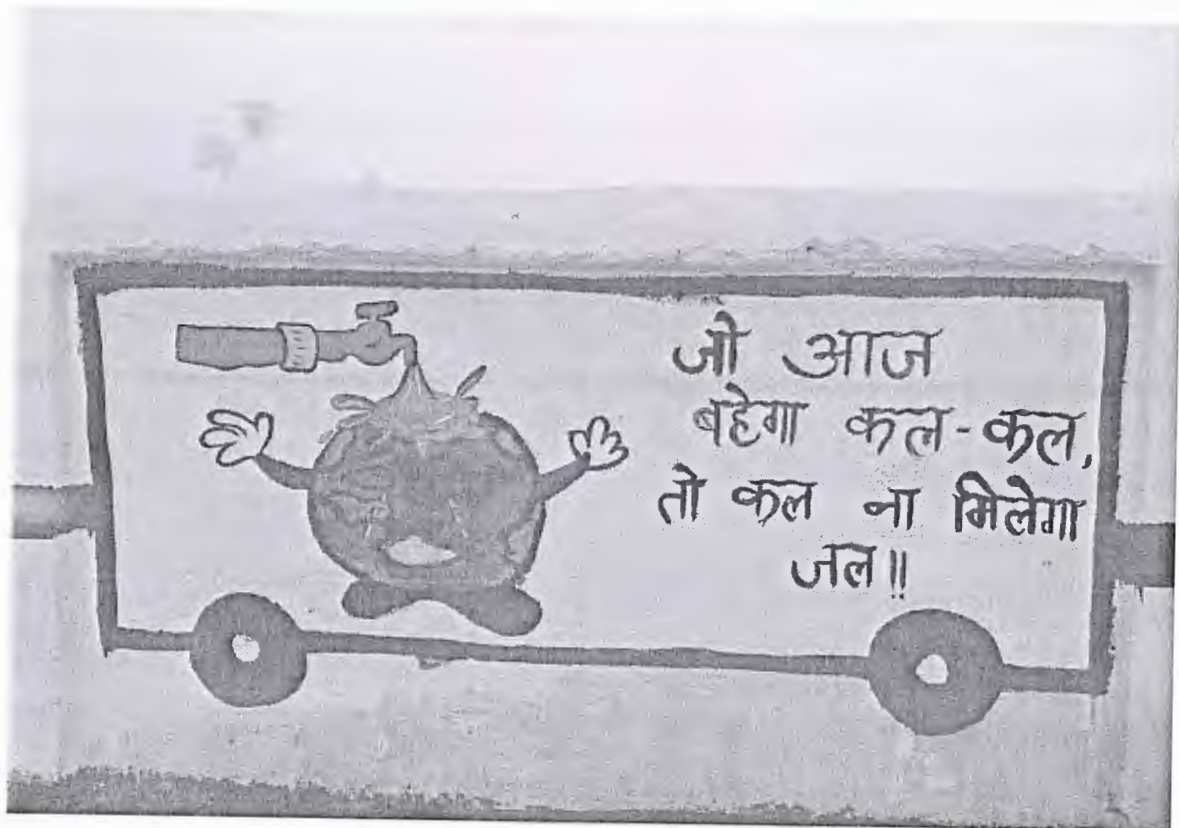 जो आज
बहेगा कल-कल,
तो कल ना मिलेगा
जल॥